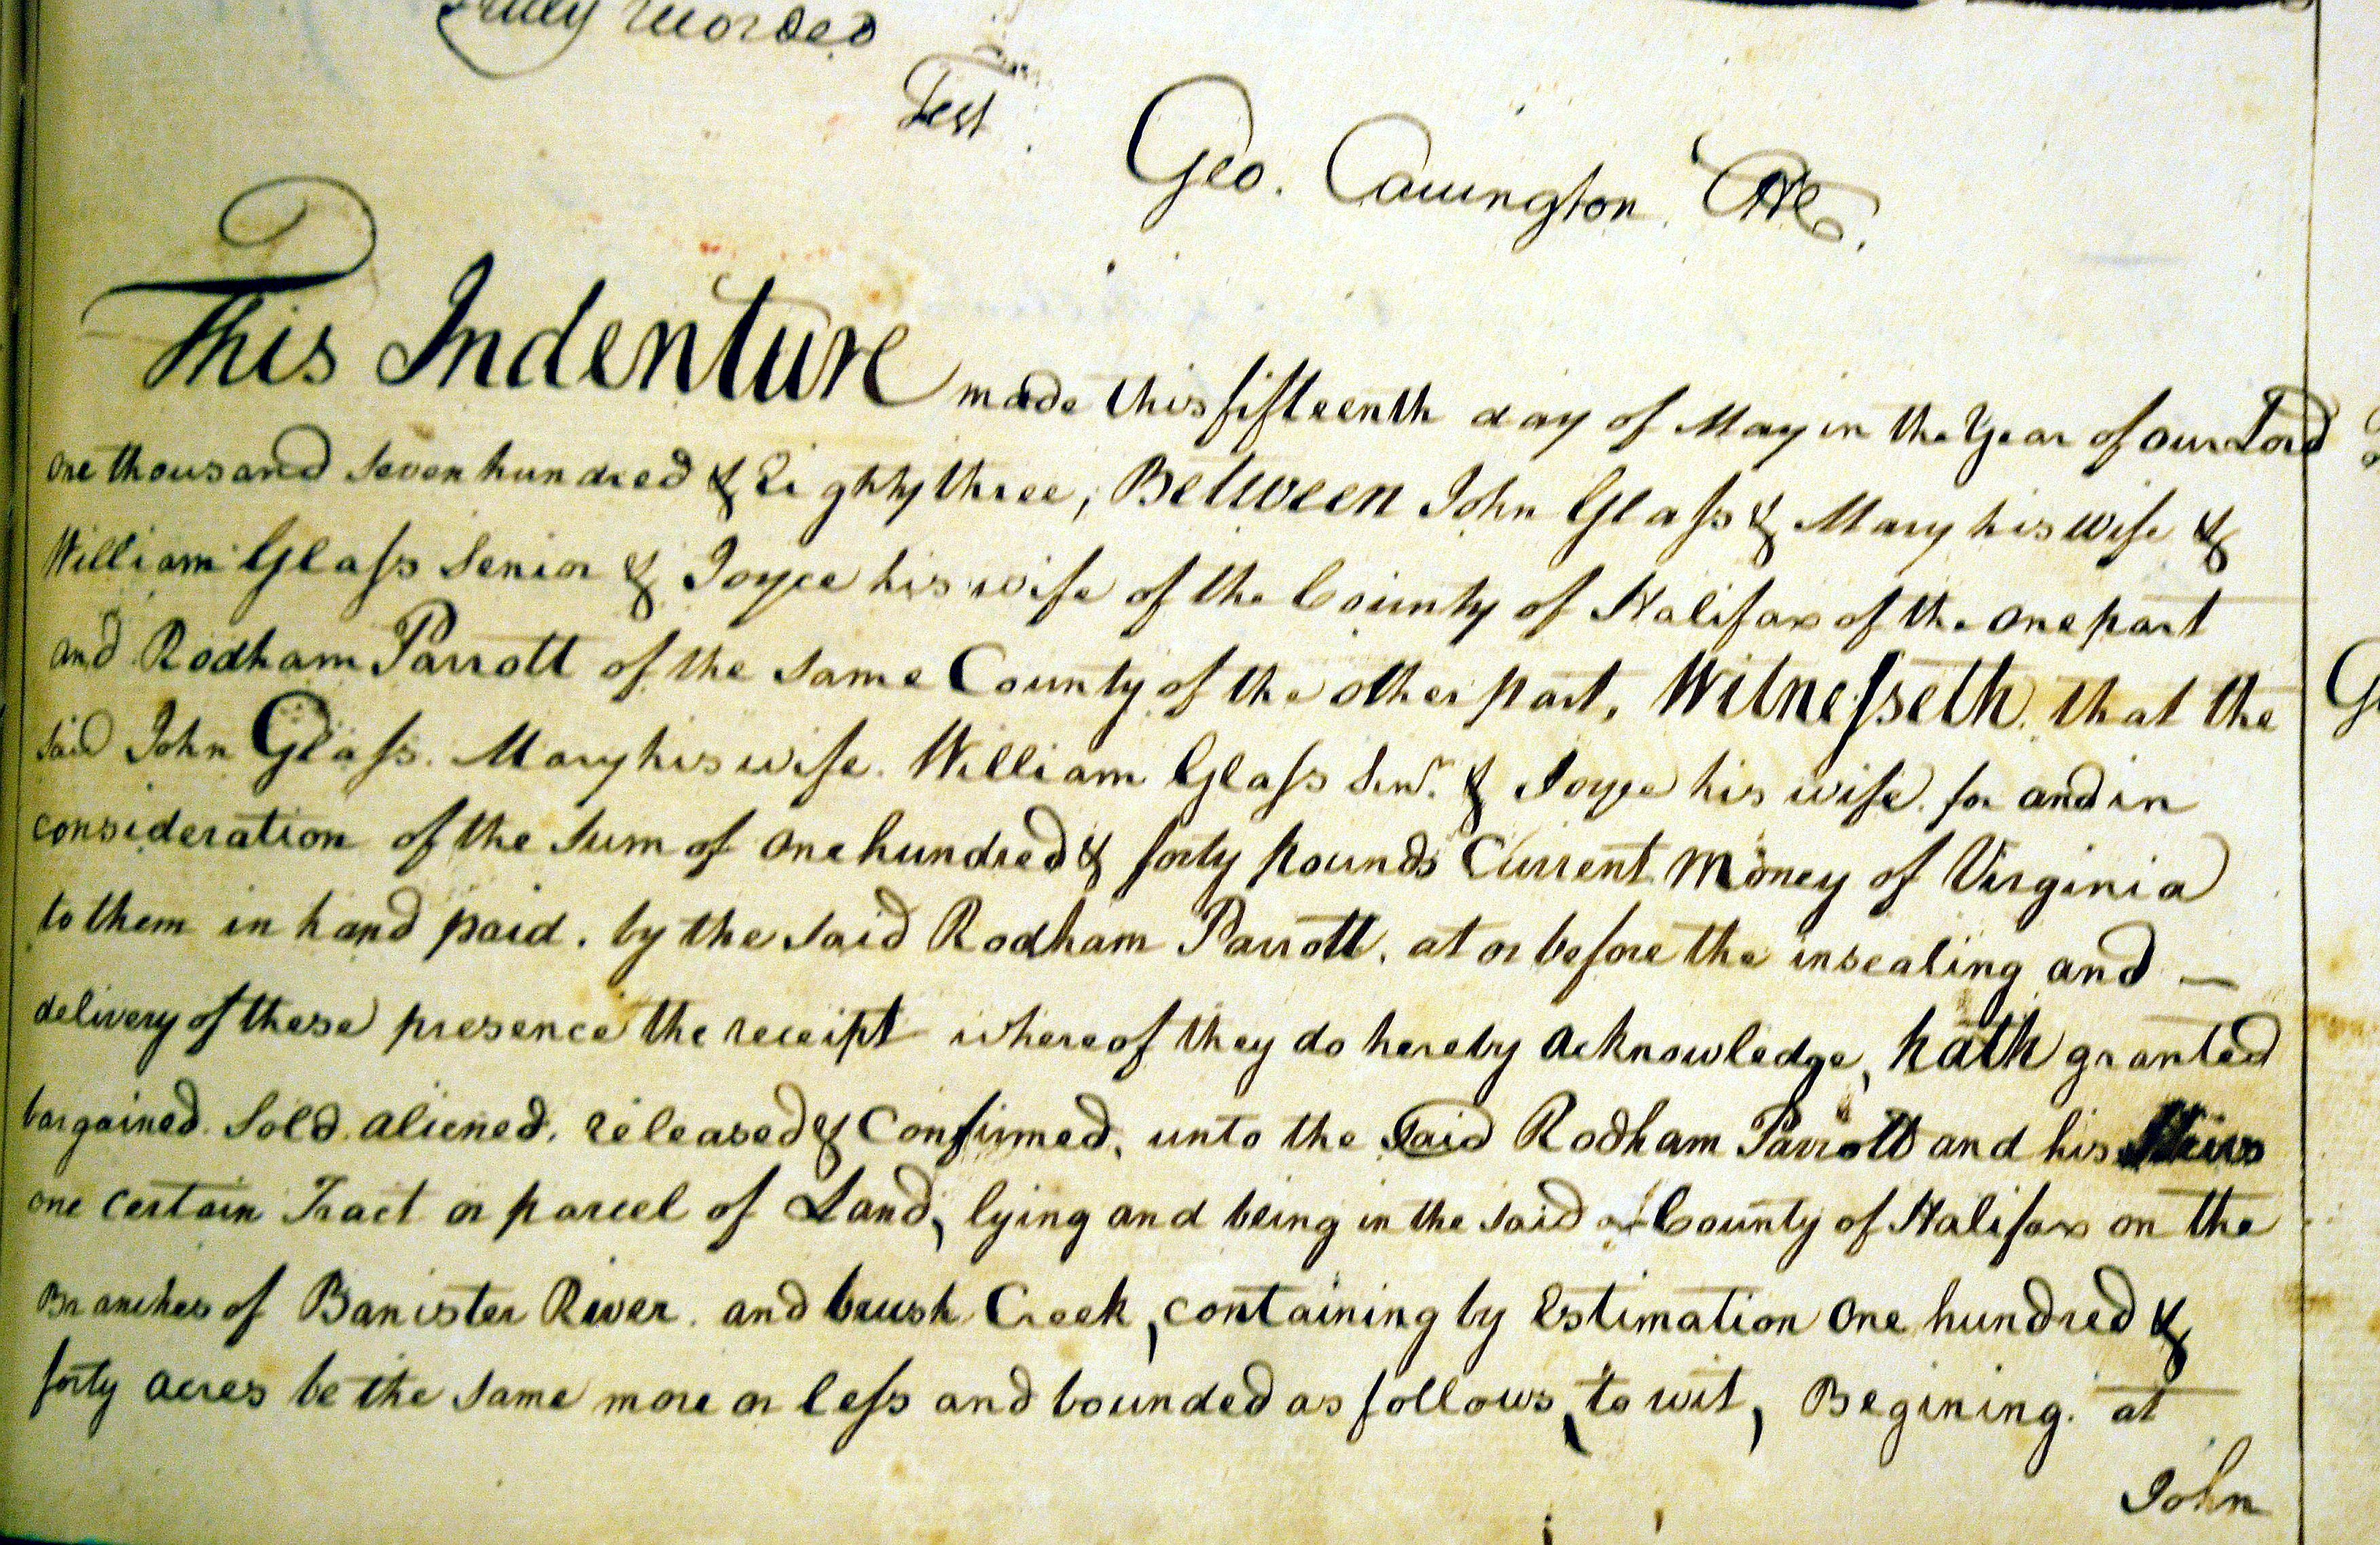 truly recorded
Test
Geo. Carrington CHC.
This Indenture made this fifteenth day of May in the Year of our Lord
one thousand seven hundred & Eighty three, Between John Glass & Mary his wife &
William Glass Senior & Joyce his wife of the County of Halifax of the one part
and Rodham Parrott of the same County of the other part, Witnesseth that the
said John Glass. Mary his wife. William Glass Senr. & Joyce his wife. for and in
consideration of the sum of one hundred & forty pounds Current Money of Virginia
to them in hand paid. by the said Rodham Parrott. at or before the insealing and —
delivery of these presence the receipt whereof they do hereby acknowledge, hath granted
bargained. Sold. aliened. released & Confirmed. unto the said Rodham Parrott and his Heirs
one certain Tract or parcel of Land, lying and being in the said County of Halifax on the
Branches of Banister River. and brush Creek, containing by Estimation one hundred &
forty acres be the same more or less and bounded as follows, to wit, Begining. at
John